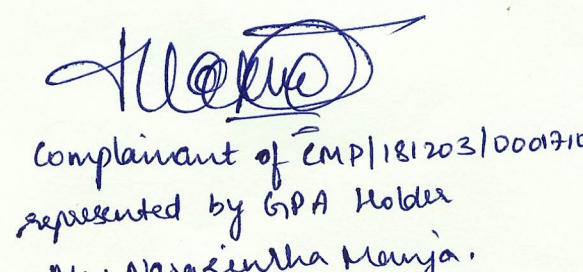 Complainant of CMP/181203/0001710
represented by GPA Holder
Narasimha Manja.